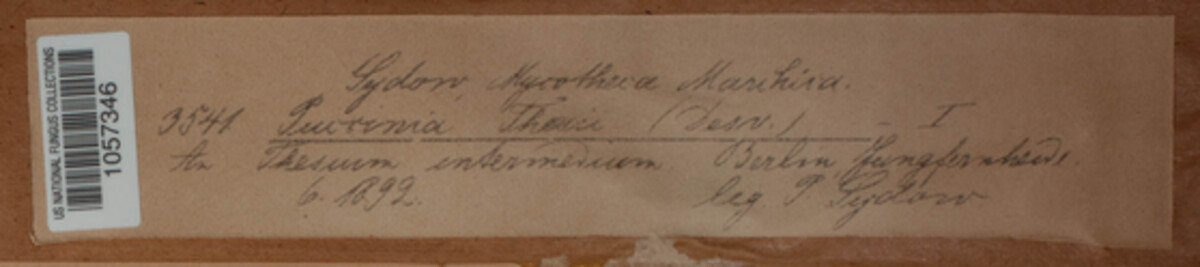 US NATIONAL FUNGUS COLLECTIONS
1057346
Sydow, Mycotheca Marchica.
3541. Puccinia Thesii (Desv.) - I
An Thesium intermedium. Berlin, Jungfernheide.
6. 1892. leg. P. Sydow